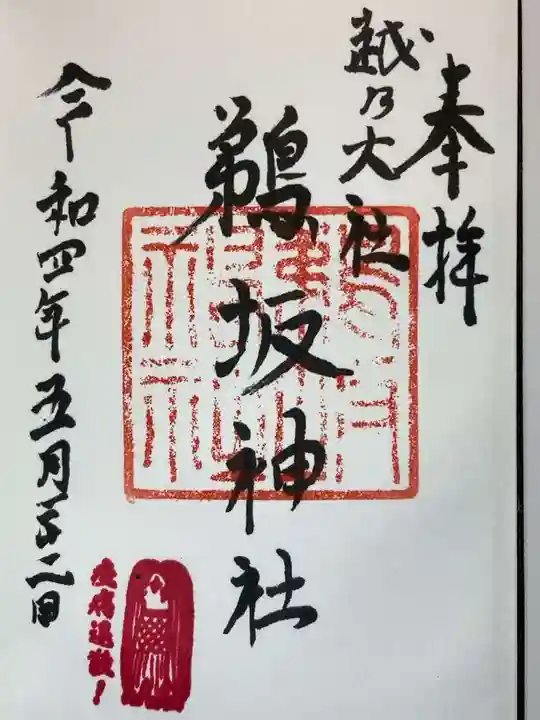 奉拝
越乃大社
鵜坂神社
令和四年五月廿二日
疫病退散！